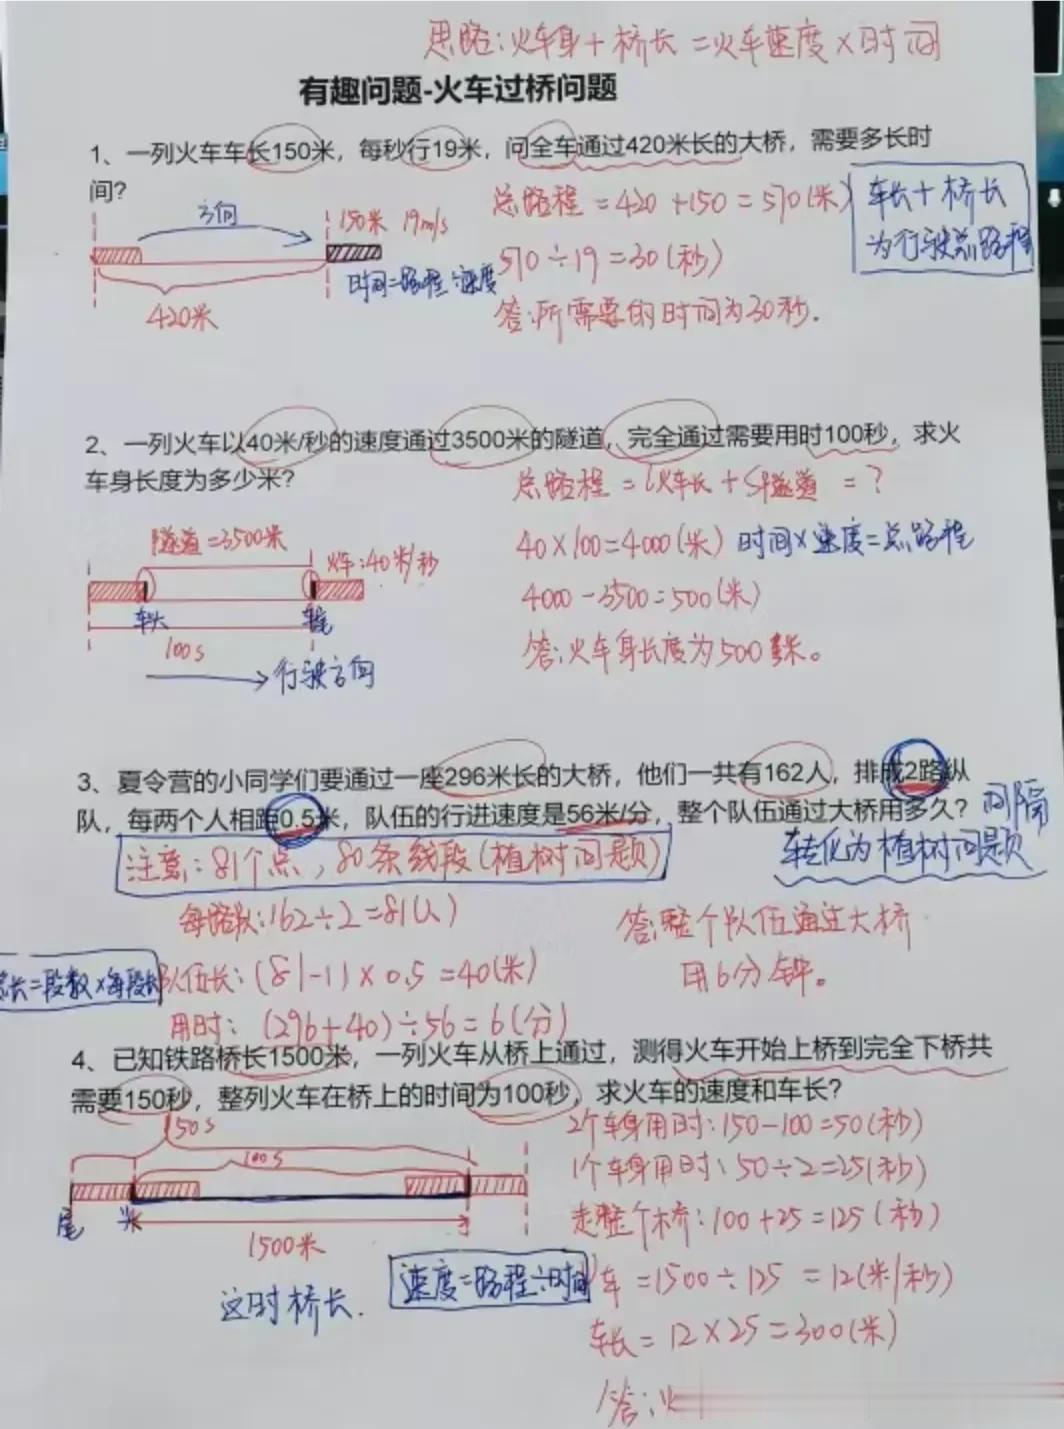 思路:火车身+桥长=火车速度×时间
有趣问题-火车过桥问题
1、一列火车车长150米，每秒行19米，问全车通过420米长的大桥，需要多长时
间?
方向
150米 19m/s
420米
时间=路程÷速度
总路程=420+150=570(米)
570÷19=30(秒)
答:所需要的时间为30秒.
车长+桥长
为行驶总路程
2、一列火车以40米/秒的速度通过3500米的隧道，完全通过需要用时100秒，求火
车身长度为多少米?
隧道=3500米
火车:40米/秒
车头
车尾
100s
行驶方向
总路程=L火车长+S隧道=?
40×100=4000(米) 时间×速度=总路程
4000-3500=500(米)
答:火车身长度为500米。
3、夏令营的小同学们要通过一座296米长的大桥，他们一共有162人，排成2路纵
队，每两个人相距0.5米，队伍的行进速度是56米/分，整个队伍通过大桥用多久?
间隔
转化为植树问题
注意:81个点,80条线段(植树问题)
每路队:162÷2=81(人)
总长=段数×每段长
队伍长:(81-1)×0.5=40(米)
用时:(296+40)÷56=6(分)
答:整个队伍通过大桥
用6分钟。
4、已知铁路桥长1500米，一列火车从桥上通过，测得火车开始上桥到完全下桥共
需要150秒，整列火车在桥上的时间为100秒，求火车的速度和车长?
150s
100s
尾
头
1500米
这时桥长.
速度=路程÷时间
2个车身用时:150-100=50(秒)
1个车身用时:50÷2=25(秒)
走整个桥:100+25=125(秒)
V车=1500÷125=12(米/秒)
车长=12×25=300(米)
答:火